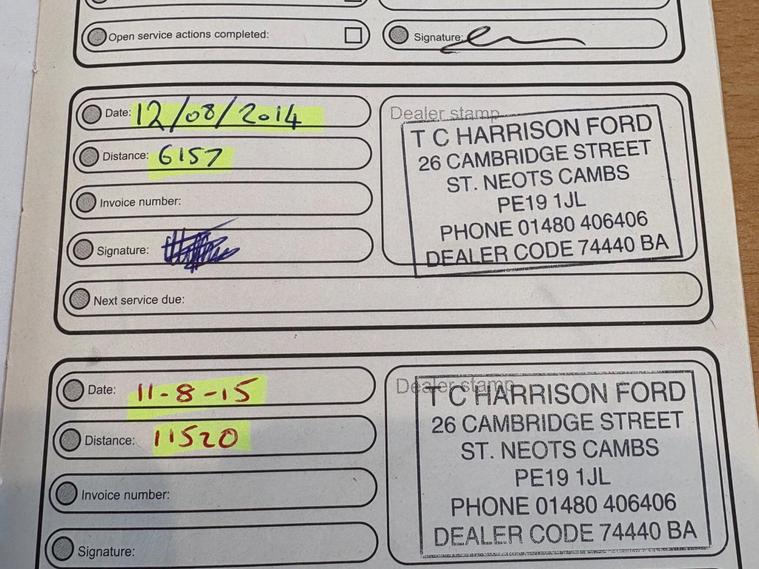 Open service actions completed:
Signature:
Date: 12/08/2014
Distance: 6157
Invoice number:
Signature:
Next service due:
Dealer stamp
T C HARRISON FORD
26 CAMBRIDGE STREET
ST. NEOTS CAMBS
PE19 1JL
PHONE 01480 406406
DEALER CODE 74440 BA
Date: 11-8-15
Distance: 11520
Invoice number:
Signature:
Dealer stamp
T C HARRISON FORD
26 CAMBRIDGE STREET
ST. NEOTS CAMBS
PE19 1JL
PHONE 01480 406406
DEALER CODE 74440 BA